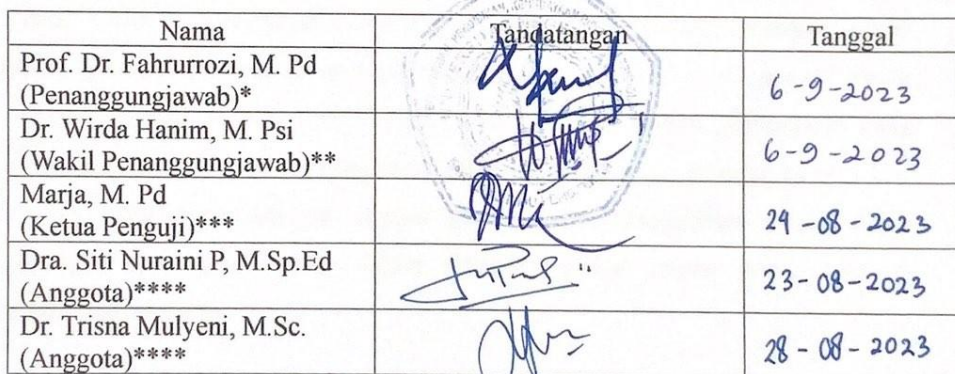 Nama Tandatangan Tanggal
Prof. Dr. Fahrurrozi, M. Pd
(Penanggungjawab)* 6-9-2023
Dr. Wirda Hanim, M. Psi
(Wakil Penanggungjawab)** 6-9-2023
Marja, M. Pd
(Ketua Penguji)*** 29-08-2023
Dra. Siti Nuraini P, M.Sp.Ed
(Anggota)**** 23-08-2023
Dr. Trisna Mulyeni, M.Sc.
(Anggota)**** 28-08-2023